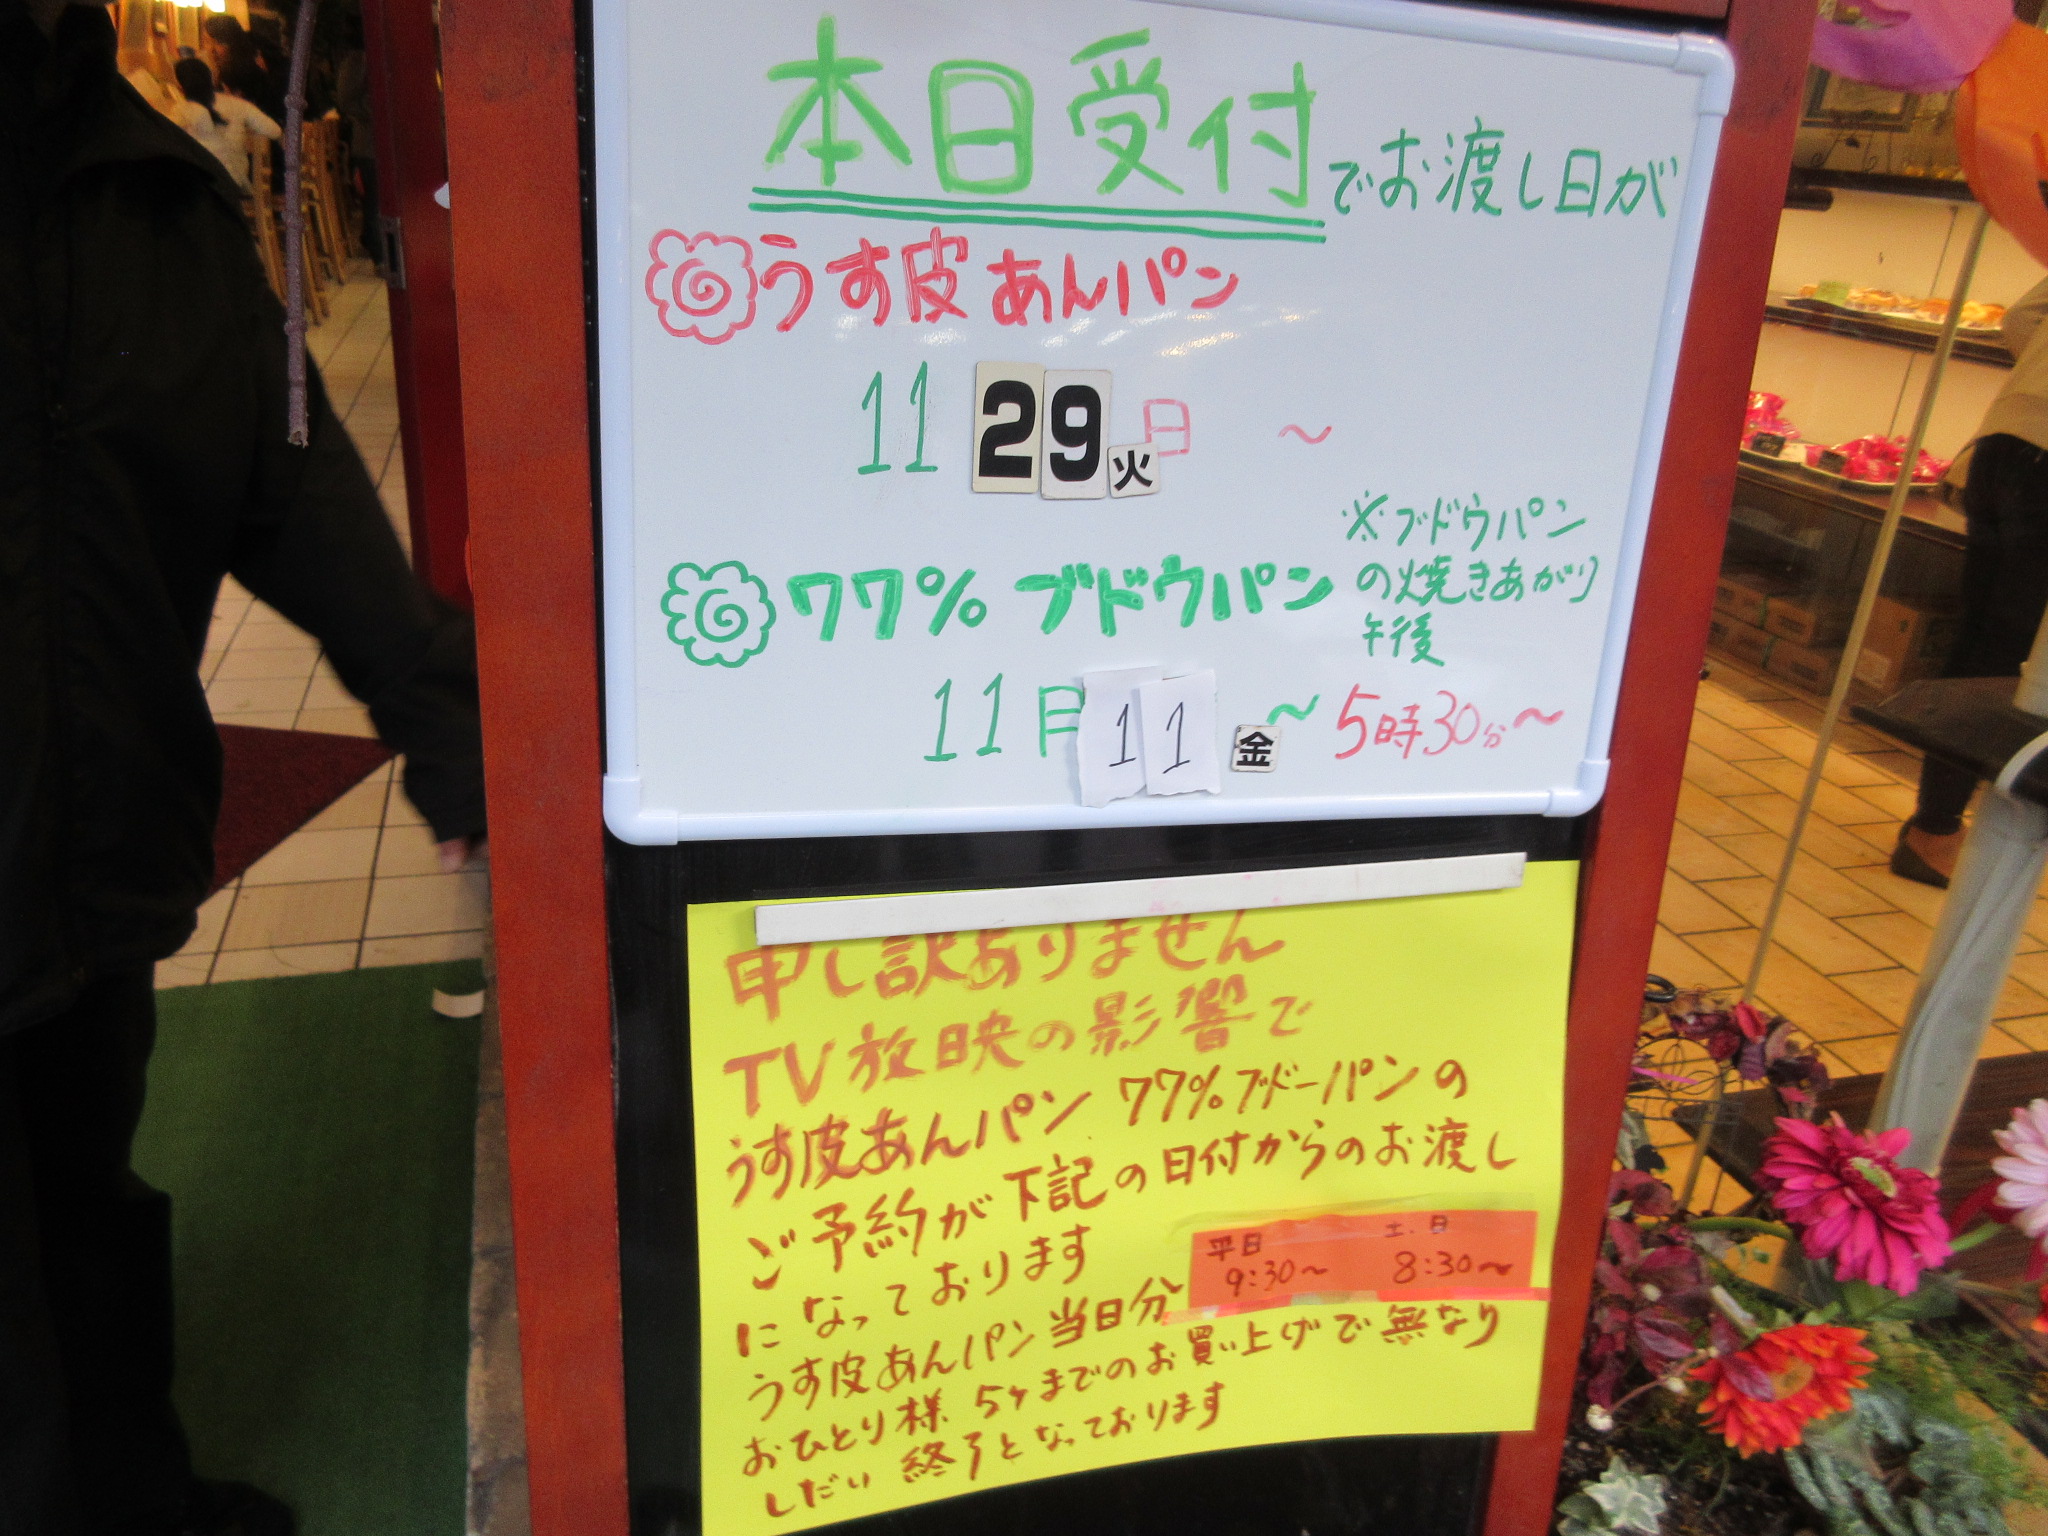 本日受付でお渡し日が
うす皮あんパン
11 29火日 ～
77% ブドウパン
※ブドウパン
の焼きあがり
午後
11月11 金～ 5時30分～
申し訳ありません
TV放映の影響で
うす皮あんパン 77%ブドーパンの
ご予約が下記の日付からのお渡し
になっております
平日 土.日
9:30～ 8:30～
うす皮あんパン当日分
おひとり様 5ヶまでのお買い上げで無なり
しだい 終了となっております